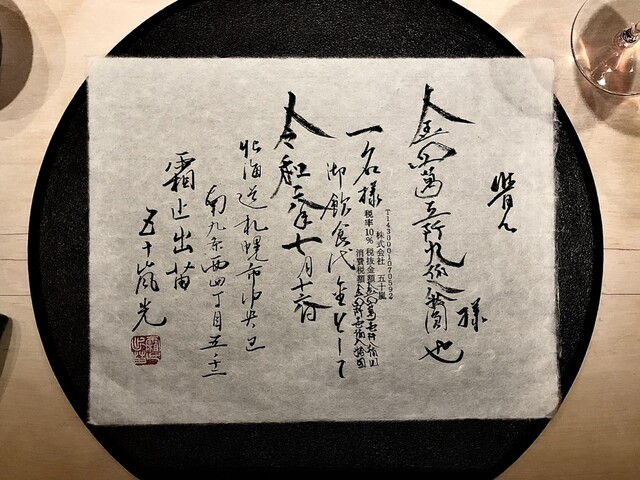 様
金四萬五阡九佰圓也
T1430001070592
株式会社 五十嵐
税率10% 税抜金額
消費税額
一名様
御飲食代金として
令和六年七月十六日
北海道札幌市中央区
南九条西四丁目五-十二
霜止出苗
五十嵐光